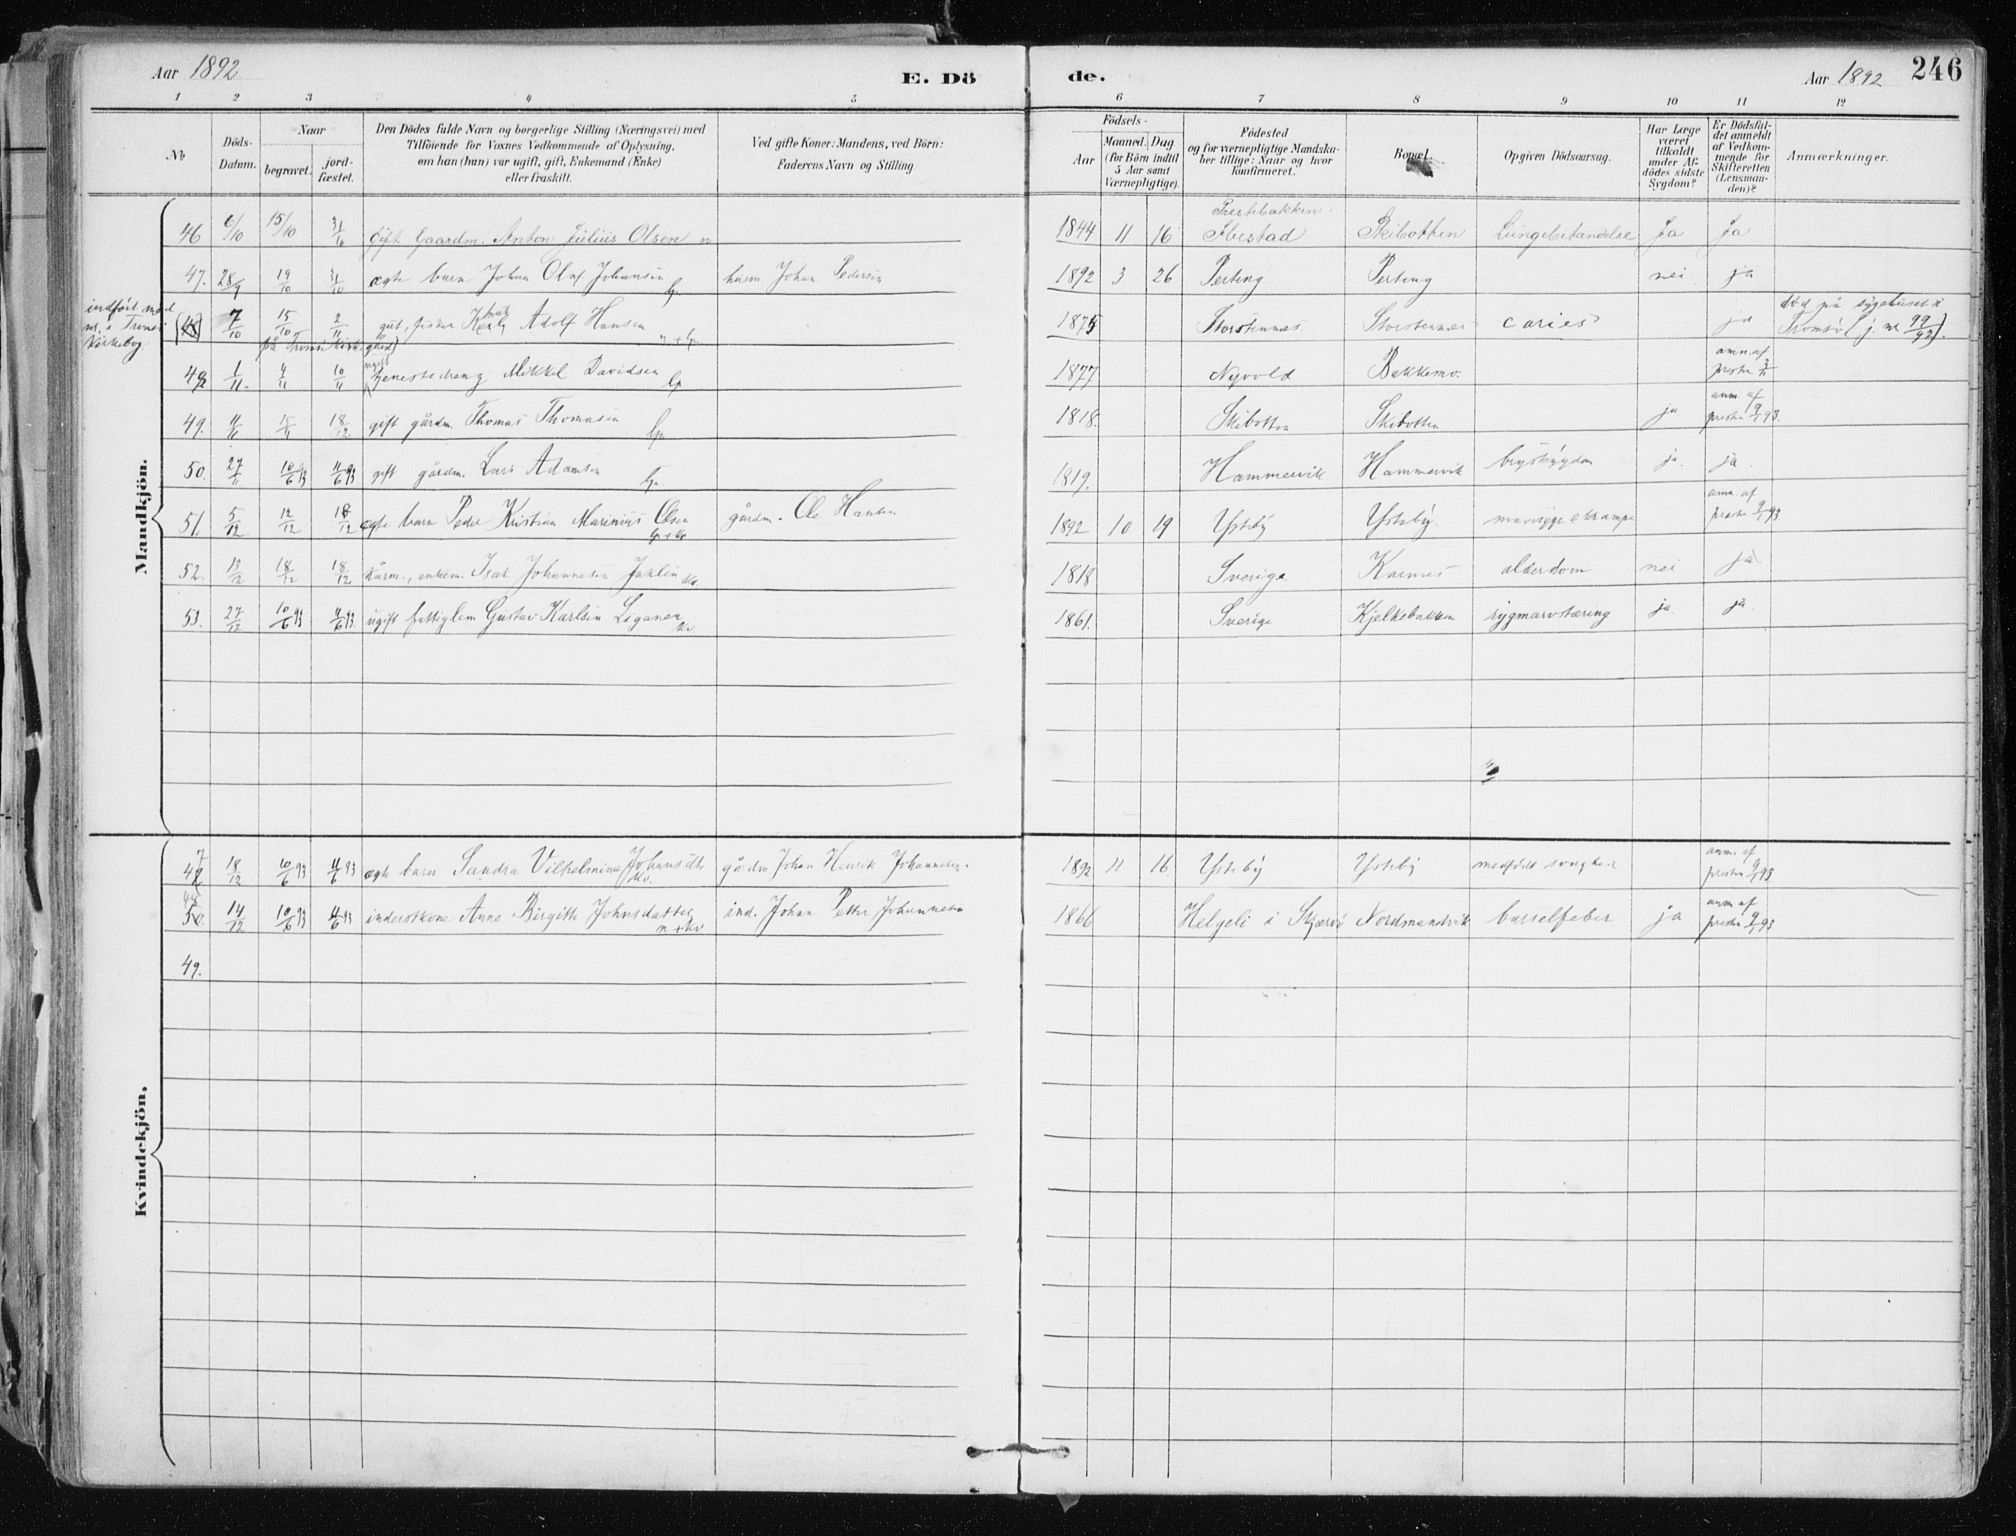 Aar 1892
E. Dö
de.
Aar 1892
246
1 2 3 4 5 6 7 8 9 10 11 12
No
Döds-Datum.
Naar
begravet.
jord-fæstet.
Den Dödes fulde Navn og borgerlige Stilling (Næringsvei) med
Tilföiende for Voxnes Vedkommende af Oplysning,
om han (hun) var ugift, gift, Enkemand (Enke)
eller fraskilt.
Ved gifte Koner: Mandens, ved Börn:
Faderens Navn og Stilling.
Födsels-
Aar
Maaned. Dag
(for Börn indtil
5 Aar samt
Værnepligtige).
Födested
og for værnepligtige Mandska-
ber tillige: Naar og hvor
konfirmeret.
Bopæl.
Opgiven Dödsaarsag.
Har Læge
været
tilkaldt
under Af-
dödes sidste
Sygdom?
Er Dödsfal-
det anmeldt
af Vedkom-
mende for
Skifteretten
(Lensman-
den)?
Anmærkninger.
Mandkjön.
46 6/10 15/10 31/10 gift Gaardm. Anton Julius Olsen n 1844 11 16 Prestebakken Ibestad Skibotten Lungebetændelse Ja Ja
47. 28/9 19/10 31/10 ægte barn Johan Olaf Johansen lp husm. Johan Pedersen 1892 3 26 Perteng Perteng nei ja
indført med
nr. i Tromsø
Kirkebog.
7/10 15/10 2/11 gut, fisker Adolf Hansen n + lp 1875 Storstennæs Storstennæs caries ja død på sygehuset i
Tromsø (j. nr 99/92).
på Tromsø kirkegård)
48 1/11 4/11 10/11 ugift tjenestedreng Mikkel Davidsen lp 1877 Nyvold Bakkemo. anm. af presten
49. 4/11 15/11 18/12 gift gårdm. Thomas Thomasen lp 1818. Skibotten Skibotten ja anm. af presten 9/1 93.
50. 27/11 10/6 93 11/6 93 gift gårdm. Lars Adamsen lp 1819. Hammervik Hammervik brystsygdom ja. ja.
51. 5/12 12/12 18/12 ægte barn Peder Kristian Marenius Olsen lp + kv gårdm. Ole Hansen 1892 10 19 Ysteby Ysteby. krampe anm. af presten 9/1 93
52. 13/12 18/12 18/12 kårm., enkem. Isak Johannesen Jaklin kv. 1818 Sverige Karnes alderdom nei ja
53. 27/12 10/6 93 11/6 93. ugift fattiglem Gustav Karlsen Liganen kv 1861. Sverige Kjelksbakken rygmarvstæring ja ja.
Kvindekjön.
47 18/12 10/6 93 11/6 93 ægte barn Sandra Vilhelmine Johansdtr kv. gårdm. Johan Henrik Johannesen. 1892 11 16 Ysteby Ysteby medfødt svaghed anm. af presten 9/1 93
48 14/12 10/6 93 11/6 93 inderstkone Anne Birgitte Johnsdatter n + kv ind. Johan Petter Johannesen 1866 Helgeli i Skjærvø Nordmandvik barselfeber ja anm. af presten 9/1 93
49.